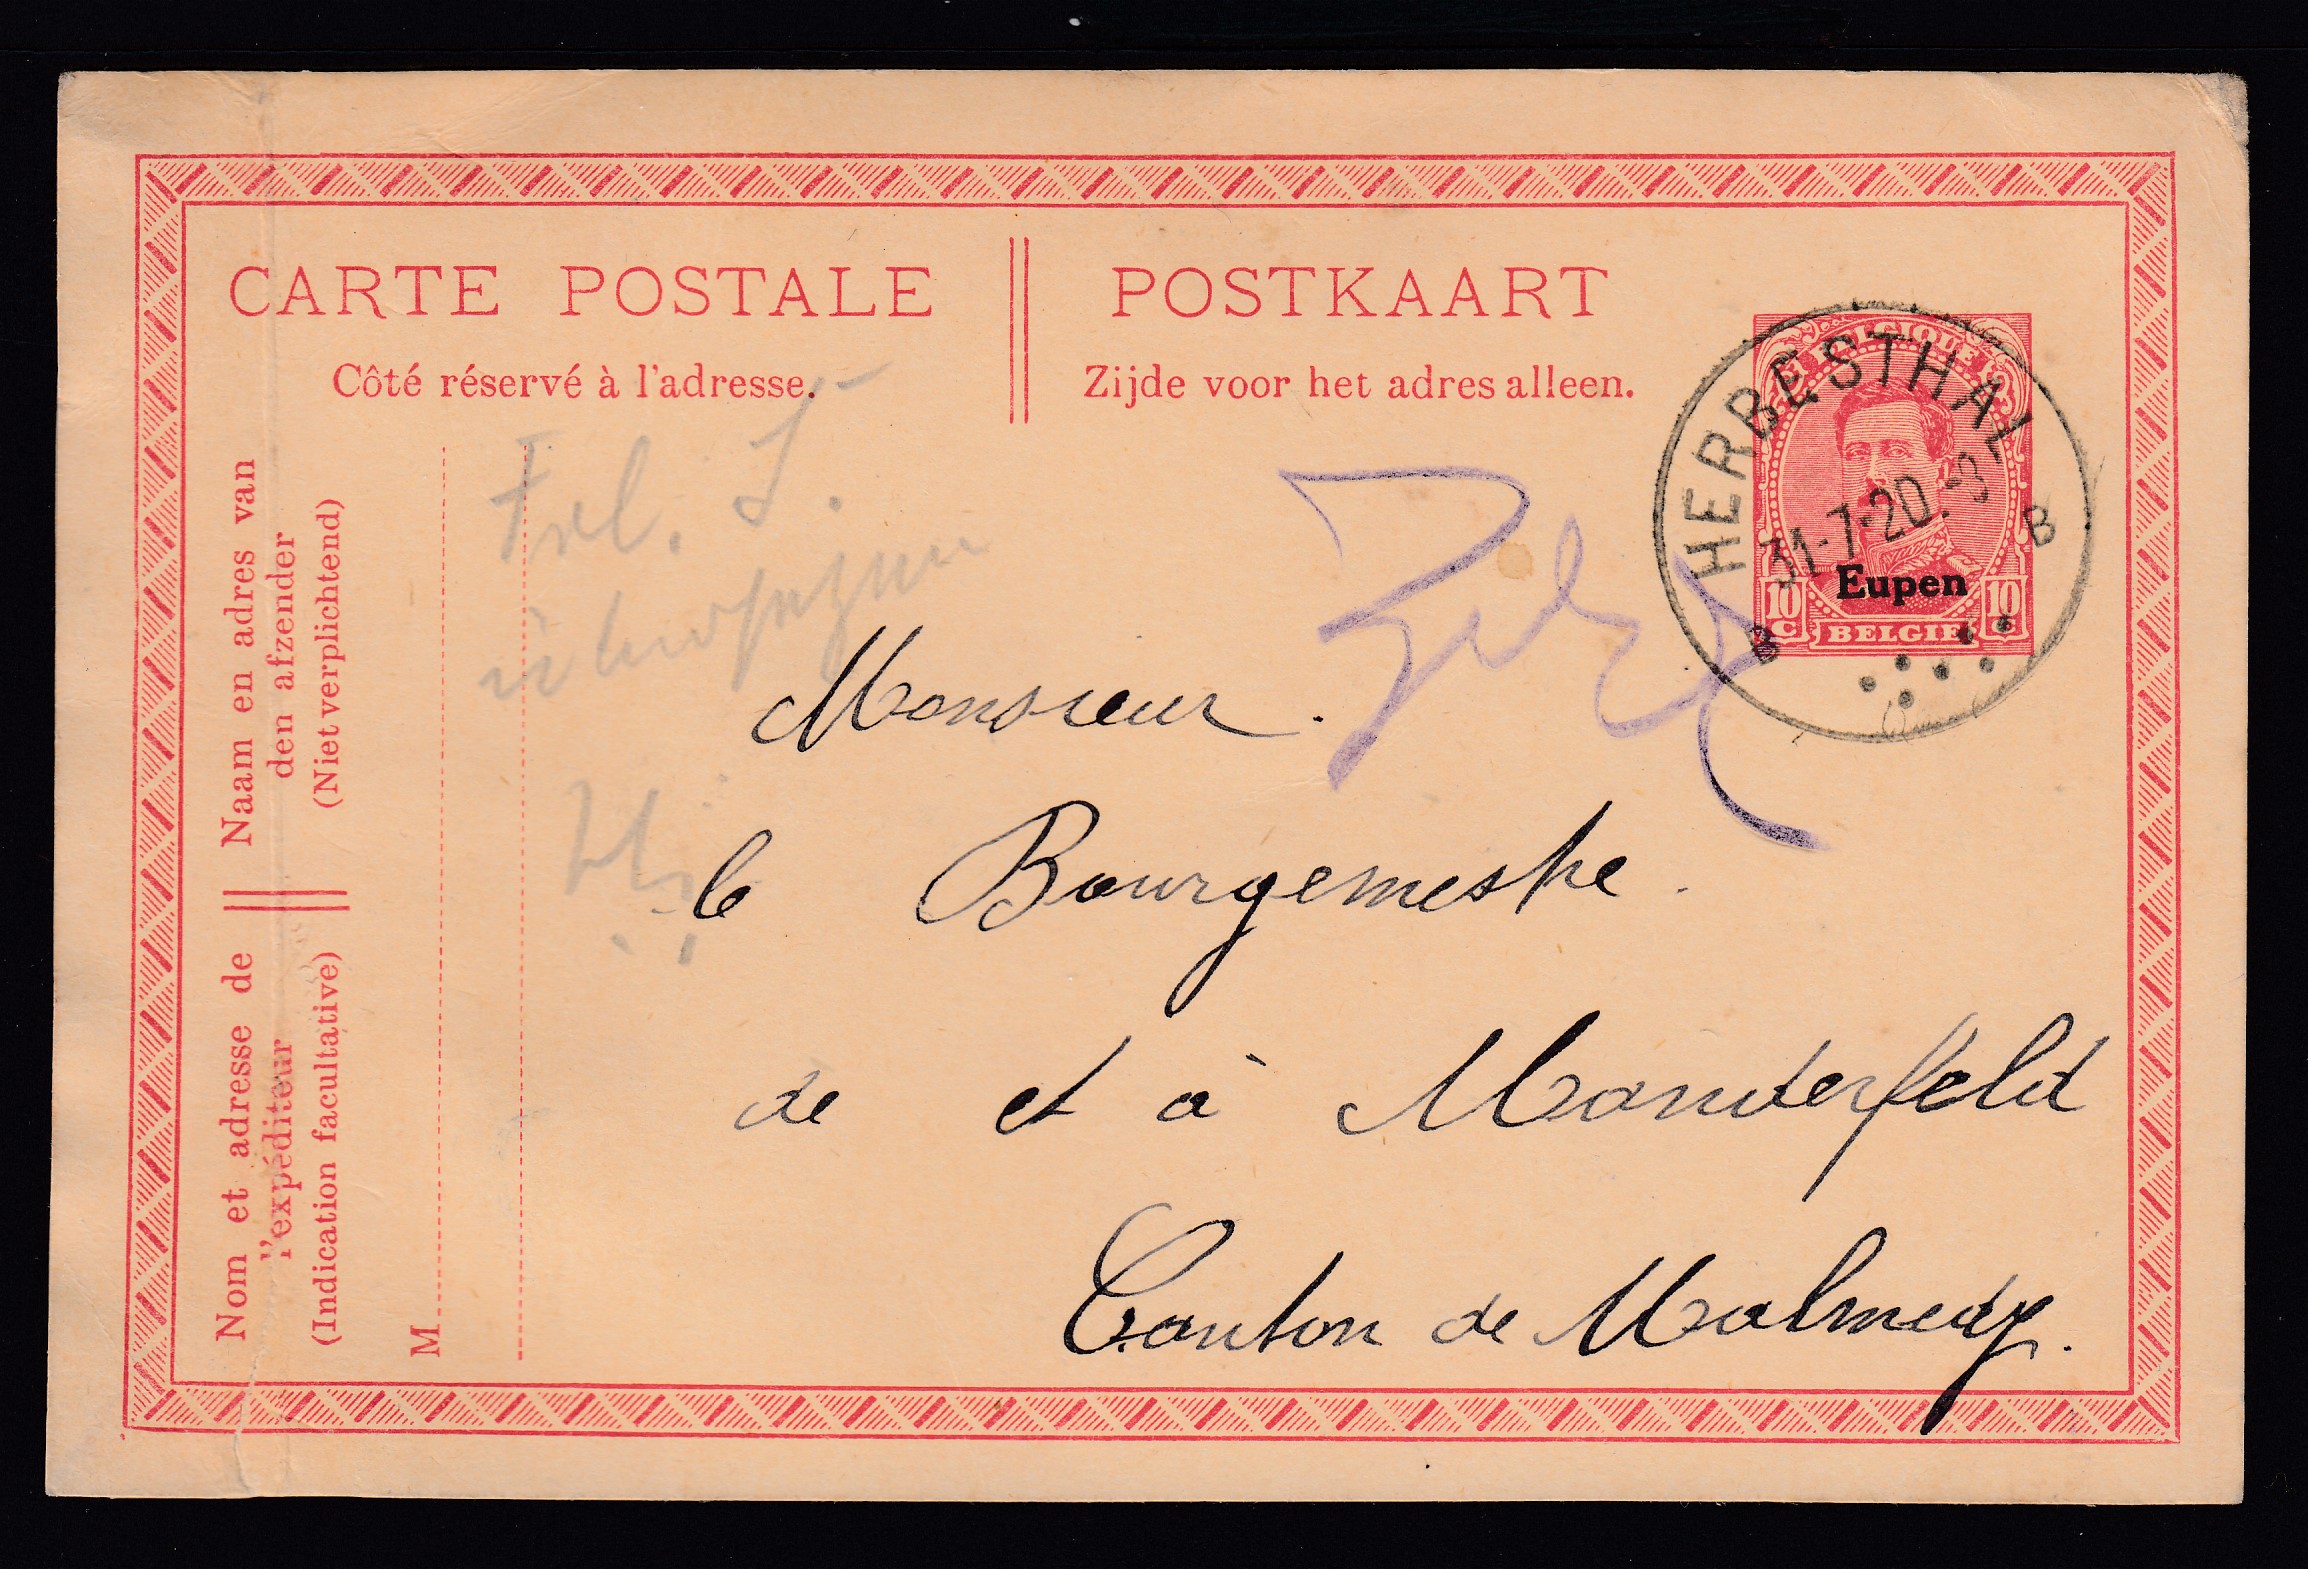 CARTE POSTALE
Côté réservé à l'adresse.
POSTKAART
Zijde voor het adres alleen.
BELGIQUE
HERBESTHAL
31-7-20.
B
B
Eupen
10 C
10 C
BELGIË
Naam en adres van
den afzender
(Niet verplichtend)
Nom et adresse de
l'expéditeur
(Indication facultative)
M
Frl. T.
Monsieur.
le Bourgemestre
de et à Manderfeld
Canton de Malmedy.